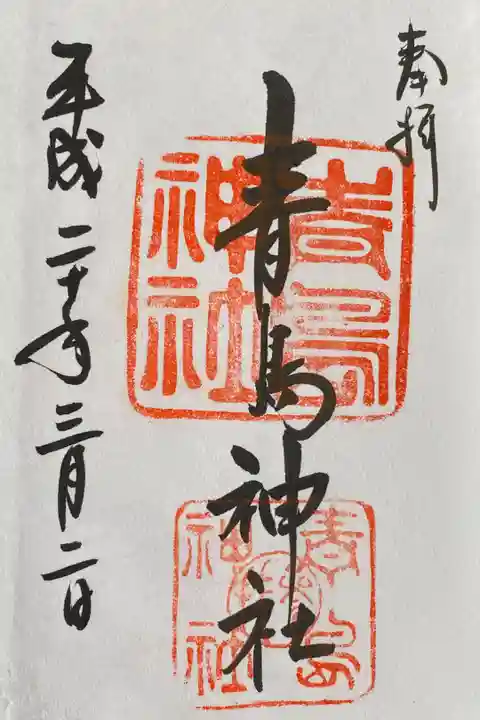 奉拝
青島神社
平成二十年三月二日
青島神社
青島神社